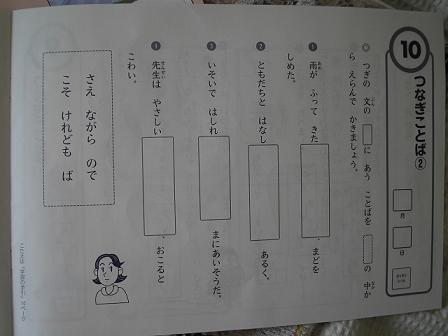 10
つなぎことば②
月
日
◎ つぎの 文の □に あう ことばを □の 中か
ら えらんで かきましょう。
① 雨が ふって きた □、まどを
しめた。
② ともだちと はなし □ あるく。
③ いそいで はしれ □ まにあいそうだ。
④ 先生は やさしい □、おこると
こわい。
さえ ながら ので
こそ けれども ば